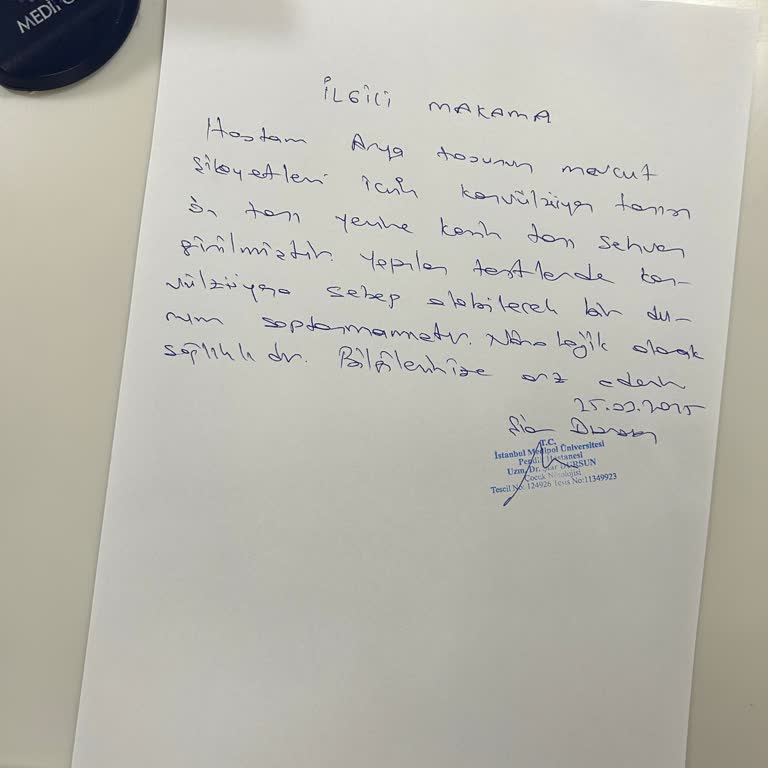 MEDİPO
İLGİLİ MAKAMA
Hastam Arya tosunun mevcut
şikayetleri için konvülziyon tanısı
ön tanı yerine kesin tanı sehven
girilmiştir. Yapılan testlerde kon-
vülziyona sebep olabilecek bir du-
rum saptanmamıştır. Nörolojik olarak
sağlıklıdır. Bilgilerinize arz ederim
25.03.2025
Dursun
T.C.
İstanbul Medipol Üniversitesi
Pendik Hastanesi
Uzm. Dr. DURSUN
Çocuk Nörolojisi
Tescil No: 124926 Tesis No:11349923